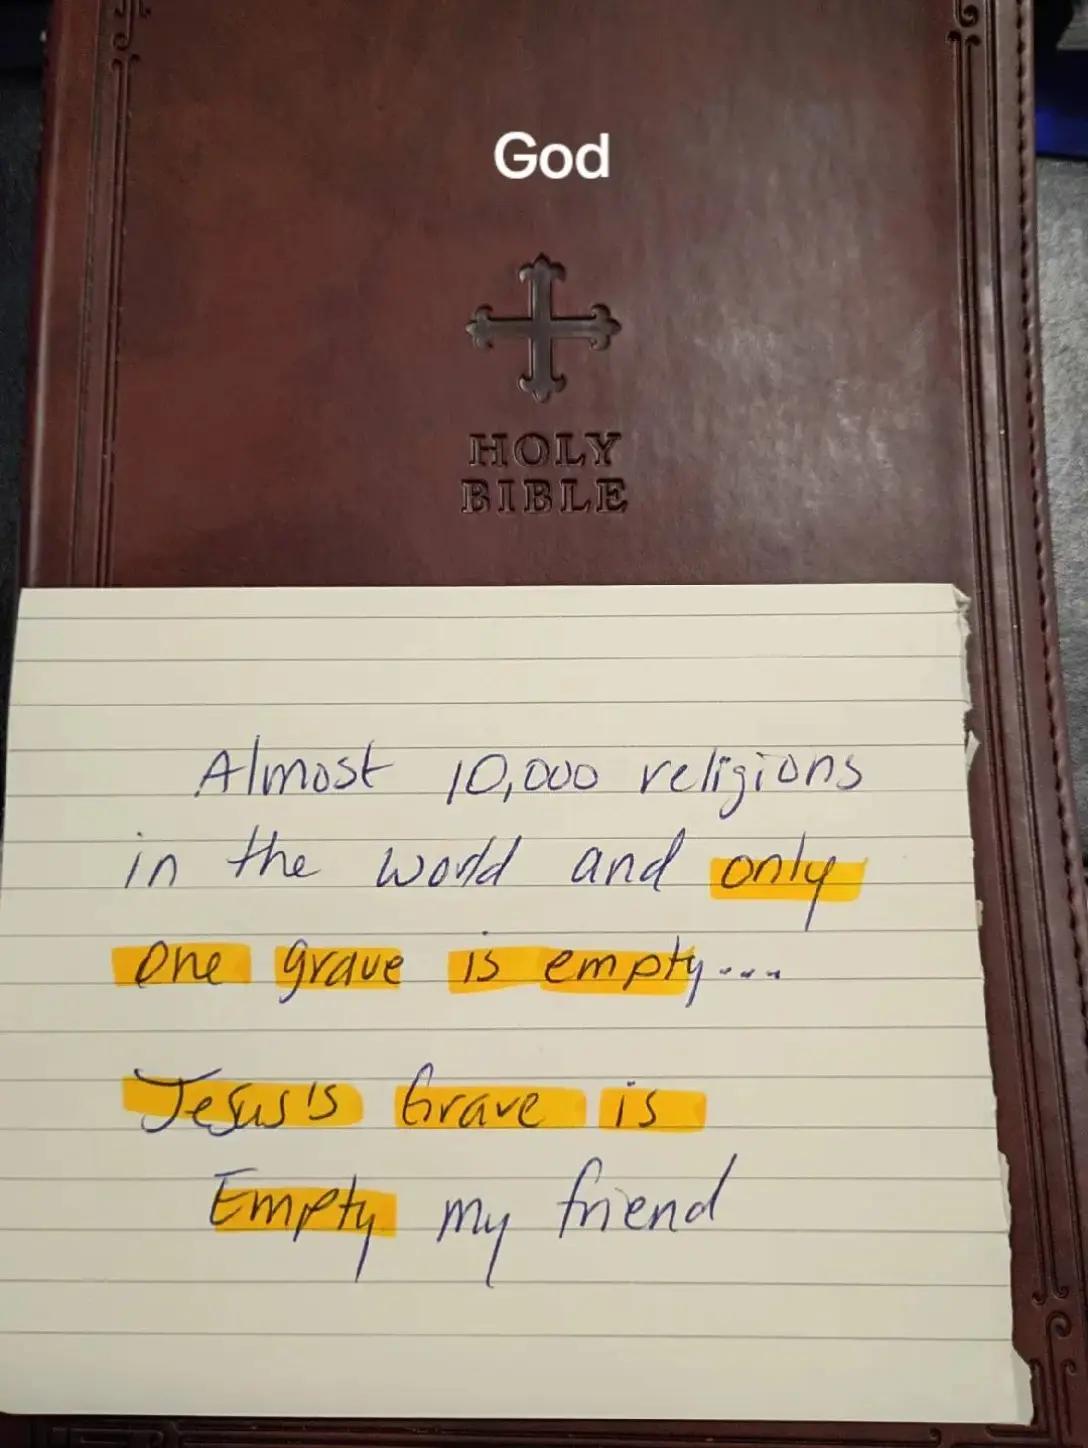 God
HOLY
BIBLE
Almost 10,000 religions
in the world and only
one grave is empty...
Jesus's Grave is
Empty my friend